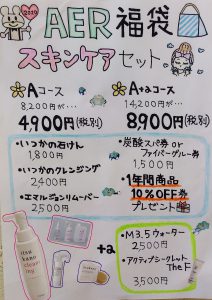 2020
AER 福袋
スキンケアセット
Aコース
8,200円が…
4900円(税別)
A+αコース
14,200円が…
8900円(税別)
・いつかの石けん
1,800円
・いつかのクレンジング
2,400円
・エマルジョンリムーバー
2,500円
・炭酸スパ券 or
ファイバーグルー券
1,500円
・1年間商品
10%OFF券
プレゼント
+α
・M3.5ウォーター
2,500円
・アクティブシークレット
The F
3,500円
itsu
kano
cleansi
ng